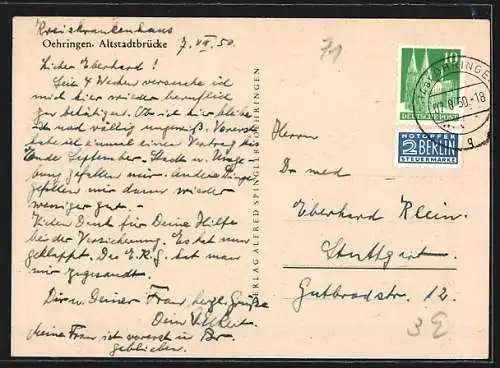 Kreiskrankenhaus
Oehringen. Altstadtbrücke 7.VIII.50.
Lieber Eberhard!
Seit 4 Wochen versuche ich
mich hier wieder beruflich
zu betätigen. Ob ich hier bleibe
ist noch völlig ungewiß. Vorerst
habe ich einmal einen Vertrag bis
Ende September. Stadt u. Umge-
bung gefallen mir. Andere Dinge
gefallen mir dann wieder
weniger gut. -
Vielen Dank für Deine Hilfe
bei der Versicherung. Es hat nun
geklappt. Die hat man
mir zugesandt.
Dir u. Deiner Frau herzl. Grüße
Dein
Meine Frau ist vorerst in
geblieben.
VERLAG ALFRED SPINGLER, OEHRINGEN
71
10
DEUTSCHE POST
NOTOPFER
2 BERLIN
STEUERMARKE
ÖHRINGEN
8.50.-18
g
Herrn
Dr med
Eberhard Klein.
Stuttgart.
Gutbrodstr. 12.